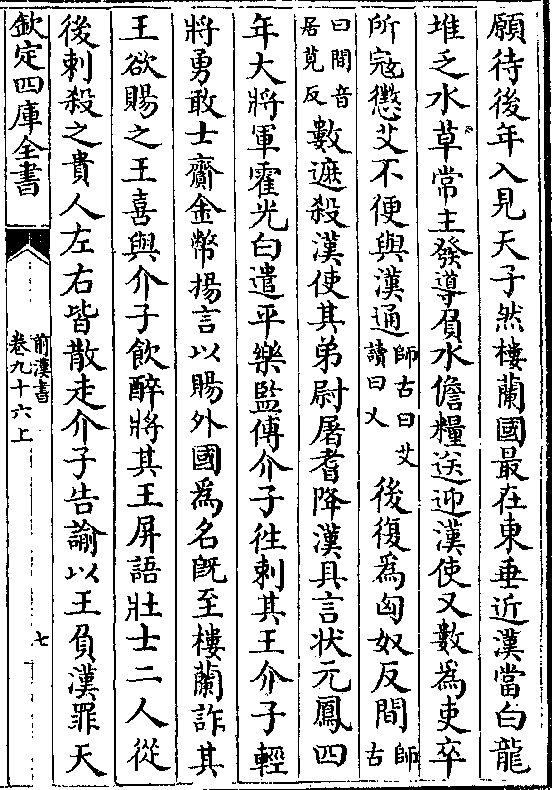 願待後年入見天子然樓蘭國最在東垂近漢當白龍
堆乏水草常主發導負水儋糧送迎漢使又數為吏卒
所寇懲艾不便與漢通師古曰艾讀曰乂後復為匈奴反間師古
曰間音居莧反數遮殺漢使其弟尉屠耆降漢具言状元鳳四
年大將軍霍光白遣平樂監傅介子往刺其王介子輕
將勇敢士齎金幣揚言以賜外國為名既至樓蘭詐其
王欲賜之王喜與介子飲醉將其王屏語壯士二人從
後刺殺之貴人左右皆散走介子告諭以王負漢罪天
欽定四庫全書
前漢書
卷九十六上
七